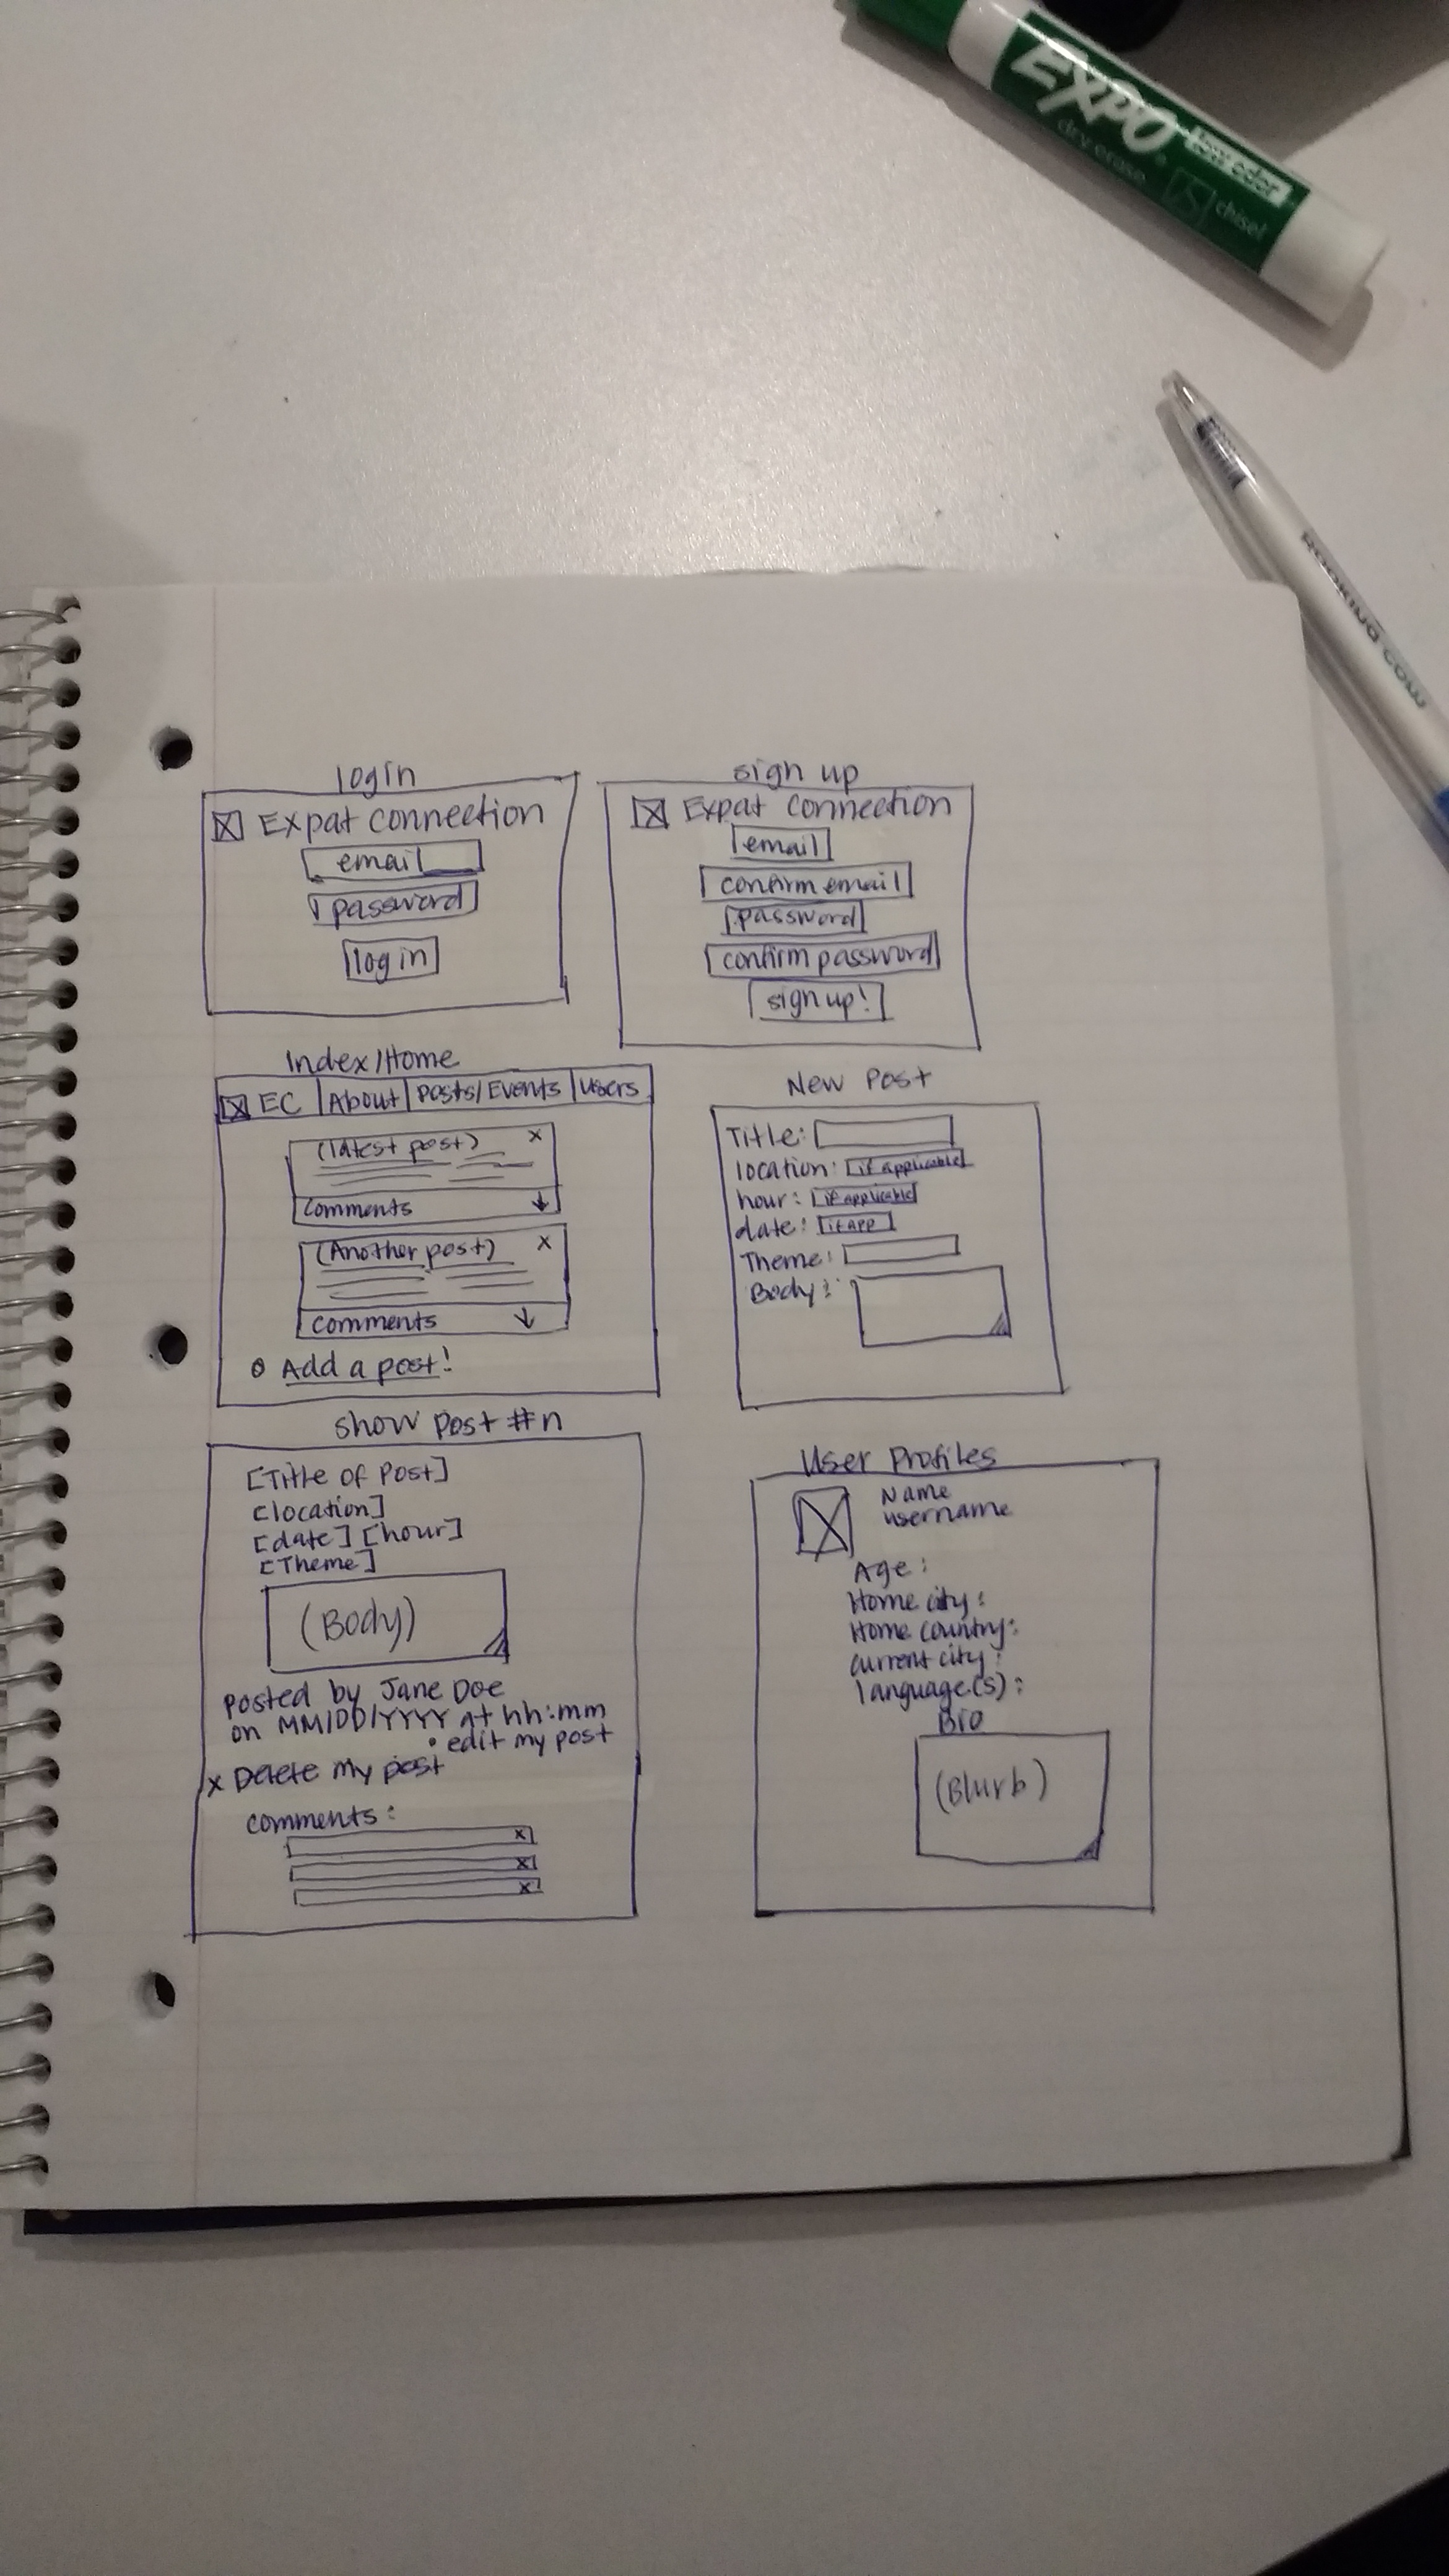 EXPO
low odor
dry erase
chisel
BOOKING.COM
login
Expat connection
email
password
log in
sign up
Expat connection
email
confirm email
password
confirm password
sign up!
Index/Home
EC About Posts/Events Users
(latest post) x
comments ↓
(Another post) x
comments ↓
Add a post!
New Post
Title:
location: if applicable
hour: if applicable
date: if app
Theme:
Body:
show post #n
[Title of Post]
[location]
[date] [hour]
[Theme]
(Body)
posted by Jane Doe
on MM/DD/YYYY at hh:mm
• edit my post
x Delete my post
comments:
x
x
x
User Profiles
Name
username
Age:
Home city:
Home country:
current city:
language(s):
Bio
(Blurb)